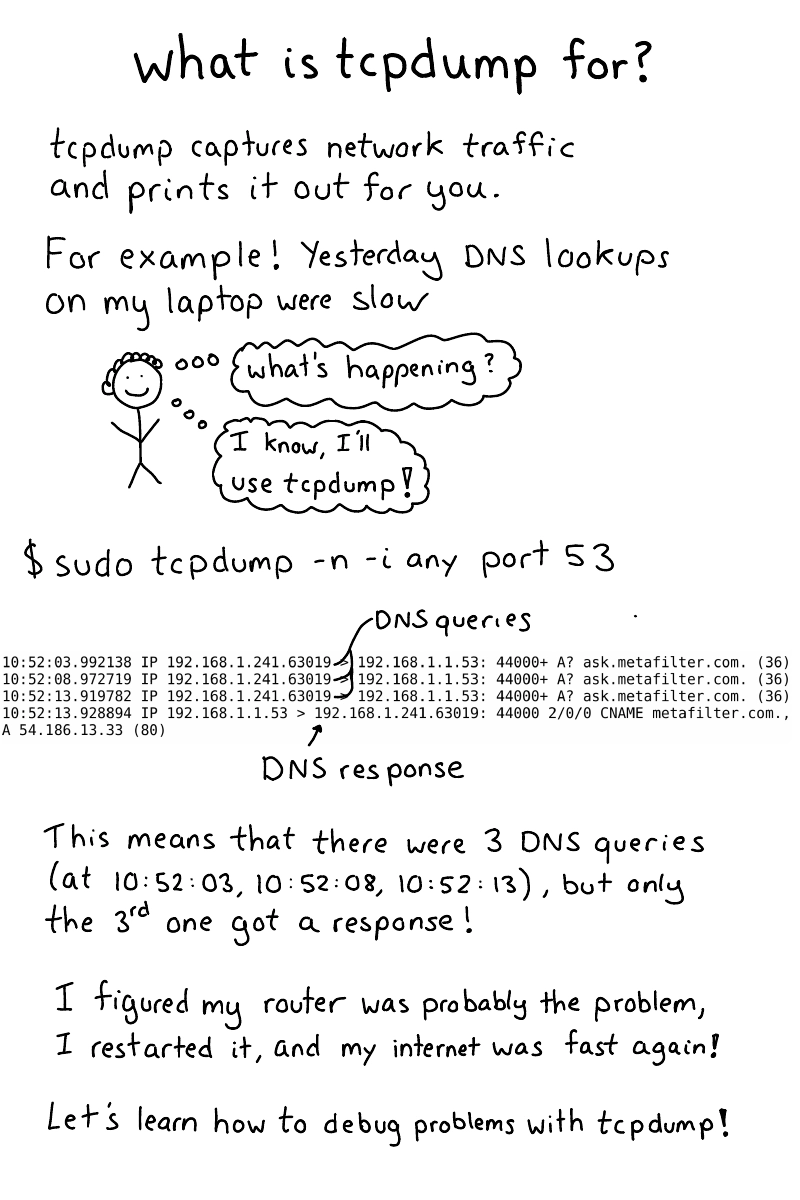 what is tcpdump for?
tcpdump captures network traffic
and prints it out for you.
For example! Yesterday DNS lookups
on my laptop were slow
what's happening?
I know, I'll
use tcpdump!
$ sudo tcpdump -n -i any port 53
DNS queries
10:52:03.992138 IP 192.168.1.241.63019 > 192.168.1.1.53: 44000+ A? ask.metafilter.com. (36)
10:52:08.972719 IP 192.168.1.241.63019 > 192.168.1.1.53: 44000+ A? ask.metafilter.com. (36)
10:52:13.919782 IP 192.168.1.241.63019 > 192.168.1.1.53: 44000+ A? ask.metafilter.com. (36)
10:52:13.928894 IP 192.168.1.1.53 > 192.168.1.241.63019: 44000 2/0/0 CNAME metafilter.com.,
A 54.186.13.33 (80)
DNS response
This means that there were 3 DNS queries
(at 10:52:03, 10:52:08, 10:52:13), but only
the 3rd one got a response!
I figured my router was probably the problem,
I restarted it, and my internet was fast again!
Let's learn how to debug problems with tcpdump!